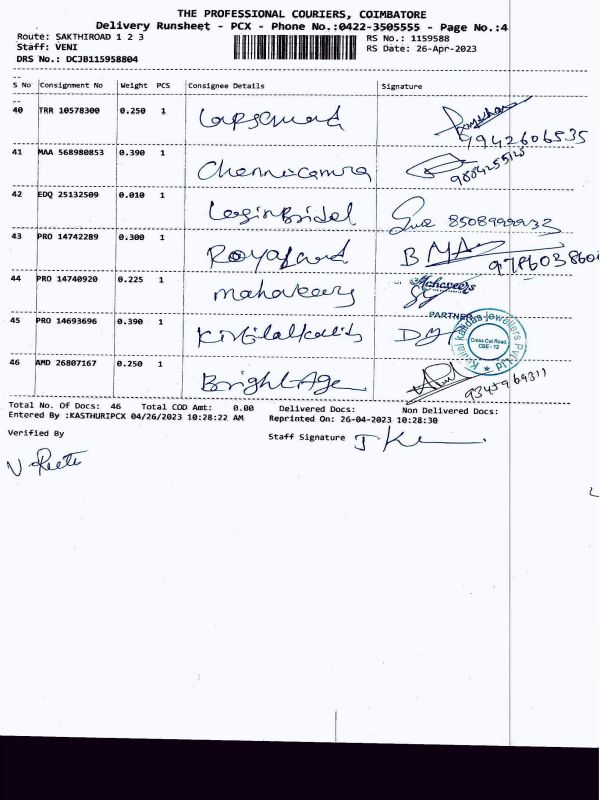 THE PROFESSIONAL COURIERS, COIMBATORE
Delivery Runsheet - PCX - Phone No.:0422-3505555 - Page No.:4
Route: SAKTHIROAD 1 2 3 RS No.: 1159588
Staff: VENI RS Date: 26-Apr-2023
DRS No.: DCJB115958804
S No Consignment No Weight PCS Consignee Details Signature
40 TRR 10578300 0.250 1
9942606535
41 MAA 568980853 0.390 1 Chennicamra
42 EDQ 25132509 0.010 1 LoginBridal
8508999933
43 PRO 14742289 0.300 1 Royaland B MA
44 PRO 14740920 0.225 1 mahaveers Mahaveers
PARTNER
45 PRO 14693696 0.390 1
Kirtilal Kalidas Jewellers Pvt Ltd
Cross Cut Road
CBE - 12
46 AMD 26807167 0.250 1 BrightAge
9345969311
Total No. Of Docs: 46 Total COD Amt: 0.00 Delivered Docs: Non Delivered Docs:
Entered By :KASTHURIPCX 04/26/2023 10:28:22 AM Reprinted On: 26-04-2023 10:28:30
Verified By Staff Signature